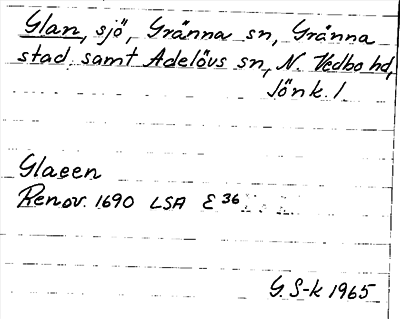 Glan, sjö, Gränna sn, Gränna
stad samt Adelövs sn, N. Vedbo hd,
Jönk. l
Glaeen
Renov. 1690 LSA E 36
G. S-k 1965